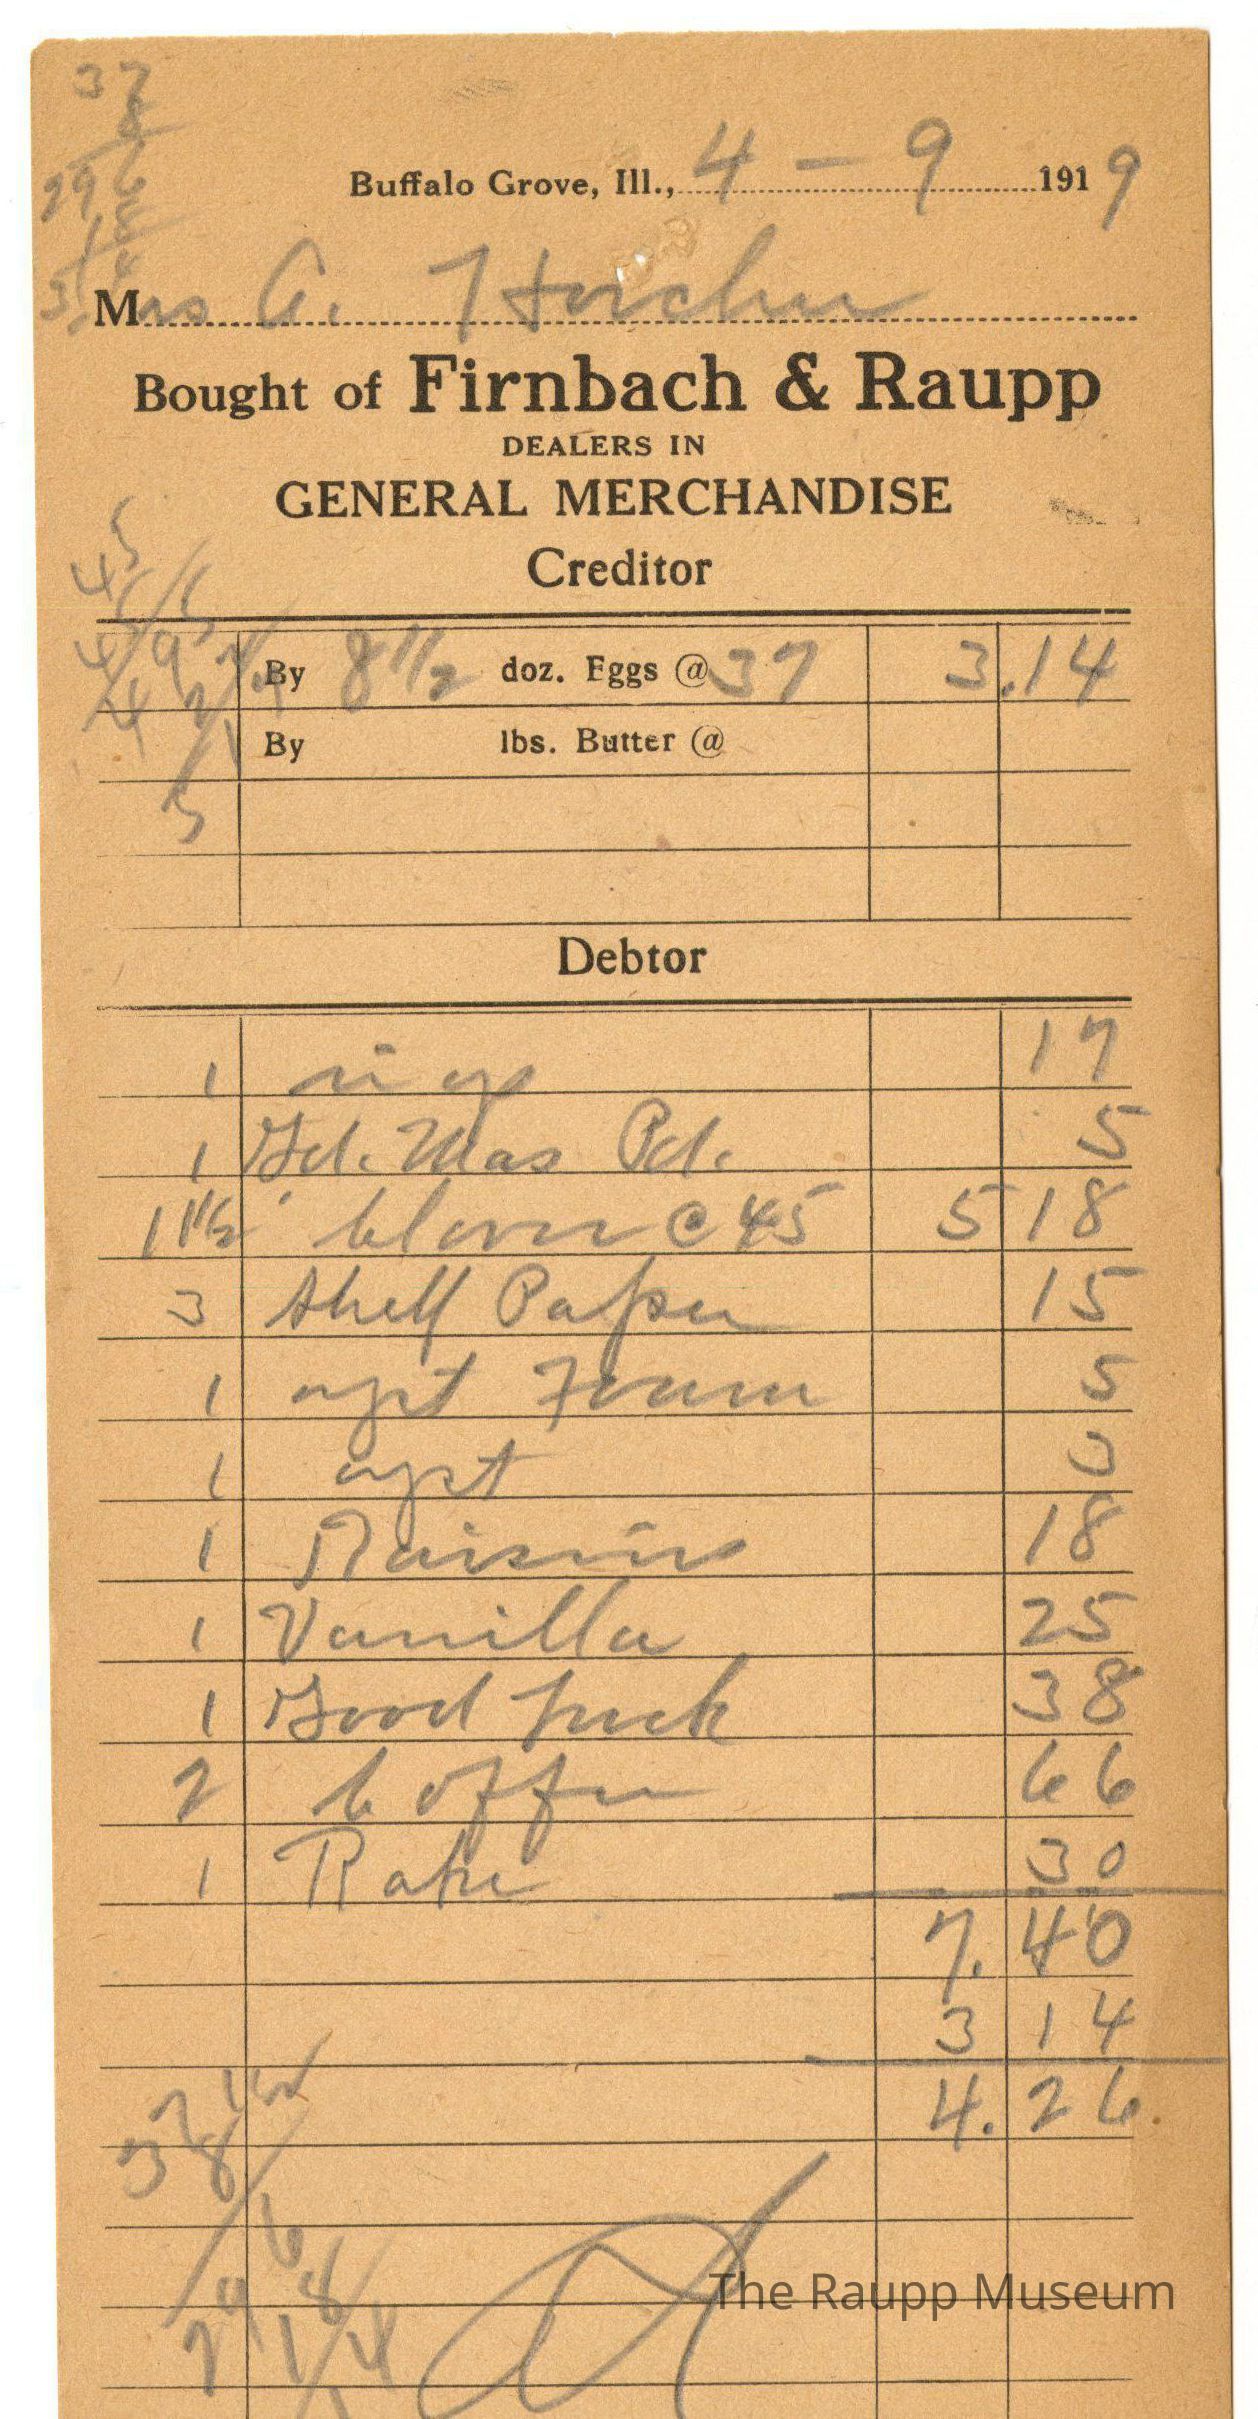 37
8
296
18
314
Buffalo Grove, Ill., 4 - 9 1919
Mrs A. Horcher
Bought of Firnbach & Raupp
DEALERS IN
GENERAL MERCHANDISE
Creditor
By 8 1/2 doz. Eggs @ 37 3.14
By lbs. Butter @
Debtor
1 17
1 Gd. Mas Pd. 5
11 1/2 Clover @ 45 5 18
3 Shelf Paper 15
1 yst Foam 5
1 yst 3
1 Raisins 18
1 Vanilla 25
1 Good Luck 38
2 Coffee 66
1 Rake 30
7.40
3 14
4.26
The Raupp Museum